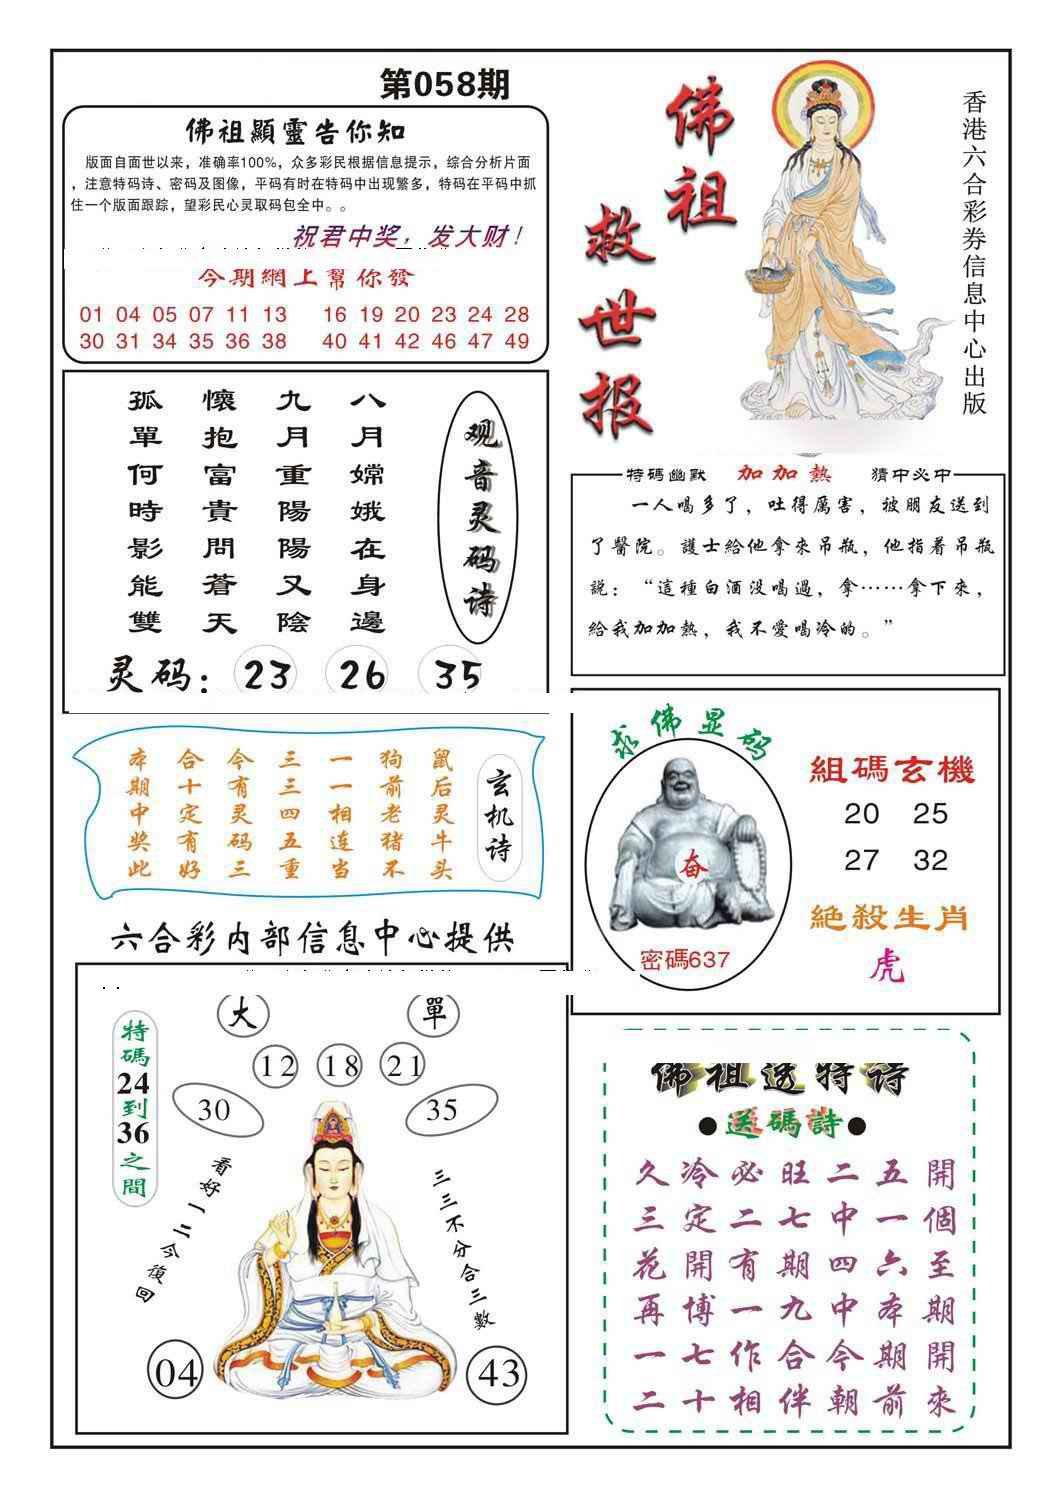 第058期
佛祖顯靈告你知
版面自面世以来，准确率100%，众多彩民根据信息提示，综合分析片面
，注意特码诗、密码及图像，平码有时在特码中出现繁多，特码在平码中抓
住一个版面跟踪，望彩民心灵取码包全中。。
祝君中奖，发大财！
今期網上幫你發
01 04 05 07 11 13 16 19 20 23 24 28
30 31 34 35 36 38 40 41 42 46 47 49
佛祖
救世报
香港六合彩券信息中心出版
观音灵码诗
八月嫦娥在身邊
九月重陽陽又陰
懷抱富貴問蒼天
孤單何時影能雙
灵码：23 26 35
特碼幽默 加加熱 猜中必中
一人喝多了，吐得厲害，被朋友送到
了醫院。護士給他拿來吊瓶，他指着吊瓶
説：“這種白酒没喝過，拿……拿下來，
給我加加熱，我不愛喝冷的。”
玄机诗
鼠后灵牛头
狗前老猪不
一一相连当
三三四五重
今有灵码三
合十定有好
本期中奖此
求佛显码
奋
密碼637
組碼玄機
20 25
27 32
絕殺生肖
虎
六合彩内部信息中心提供
大 單
12 18 21
30 35
特碼24到36之間
看好一二今復回
三三不分合三數
04 43
佛祖透特诗
●送碼詩●
久冷必旺二五開
三定二七中一個
花開有期四六至
再博一九中本期
一七作合今期開
二十相伴朝前來